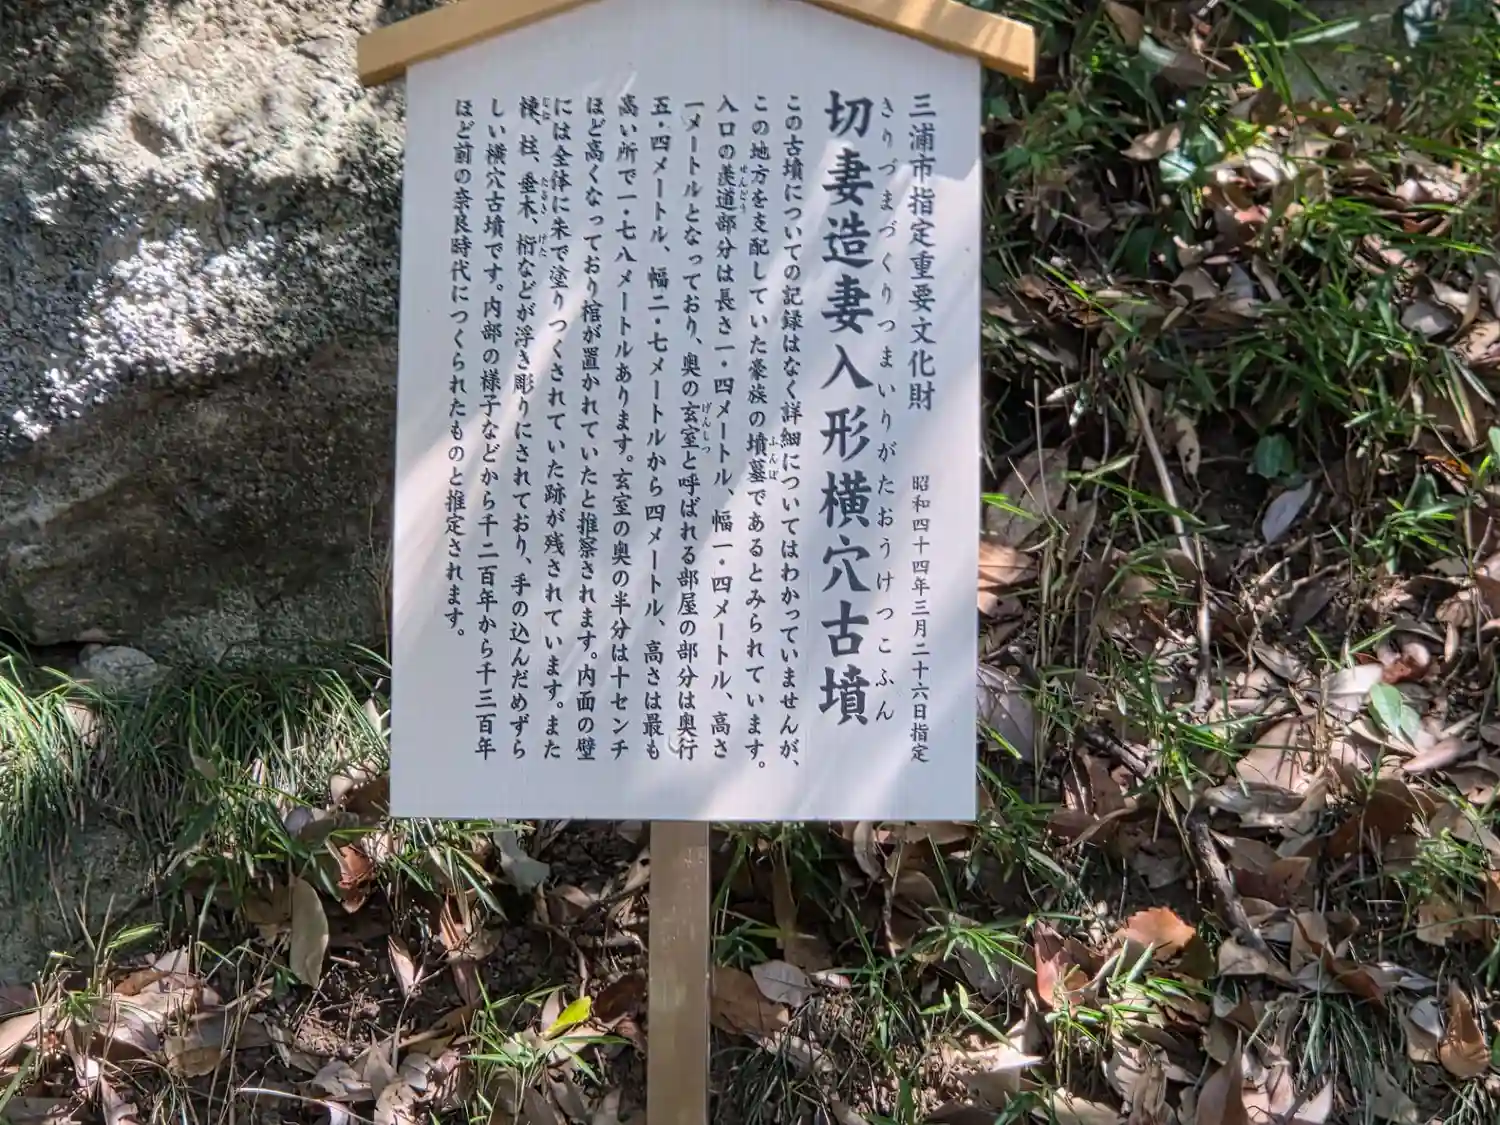 三浦市指定重要文化財 昭和四十四年三月二十六日指定
きりづまづくりつまいりがたおうけつこふん
切妻造妻入形横穴古墳
この古墳についての記録はなく詳細についてはわかっていませんが、
この地方を支配していた豪族の墳墓であるとみられています。
ふんぼ
入口の羨道部分は長さ一・四メートル、幅一・四メートル、高さ
せんどう
一メートルとなっており、奥の玄室と呼ばれる部屋の部分は奥行
げんしつ
五・四メートル、幅二・七メートルから四メートル、高さは最も
高い所で一・七八メートルあります。玄室の奥の半分は十センチ
ほど高くなっており棺が置かれていたと推察されます。内面の壁
には全体に朱で塗りつくされていた跡が残されています。また
棟、柱、垂木、桁などが浮き彫りにされており、手の込んだめずら
むね たるき けた
しい横穴古墳です。内部の様子などから千二百年から千三百年
ほど前の奈良時代につくられたものと推定されます。